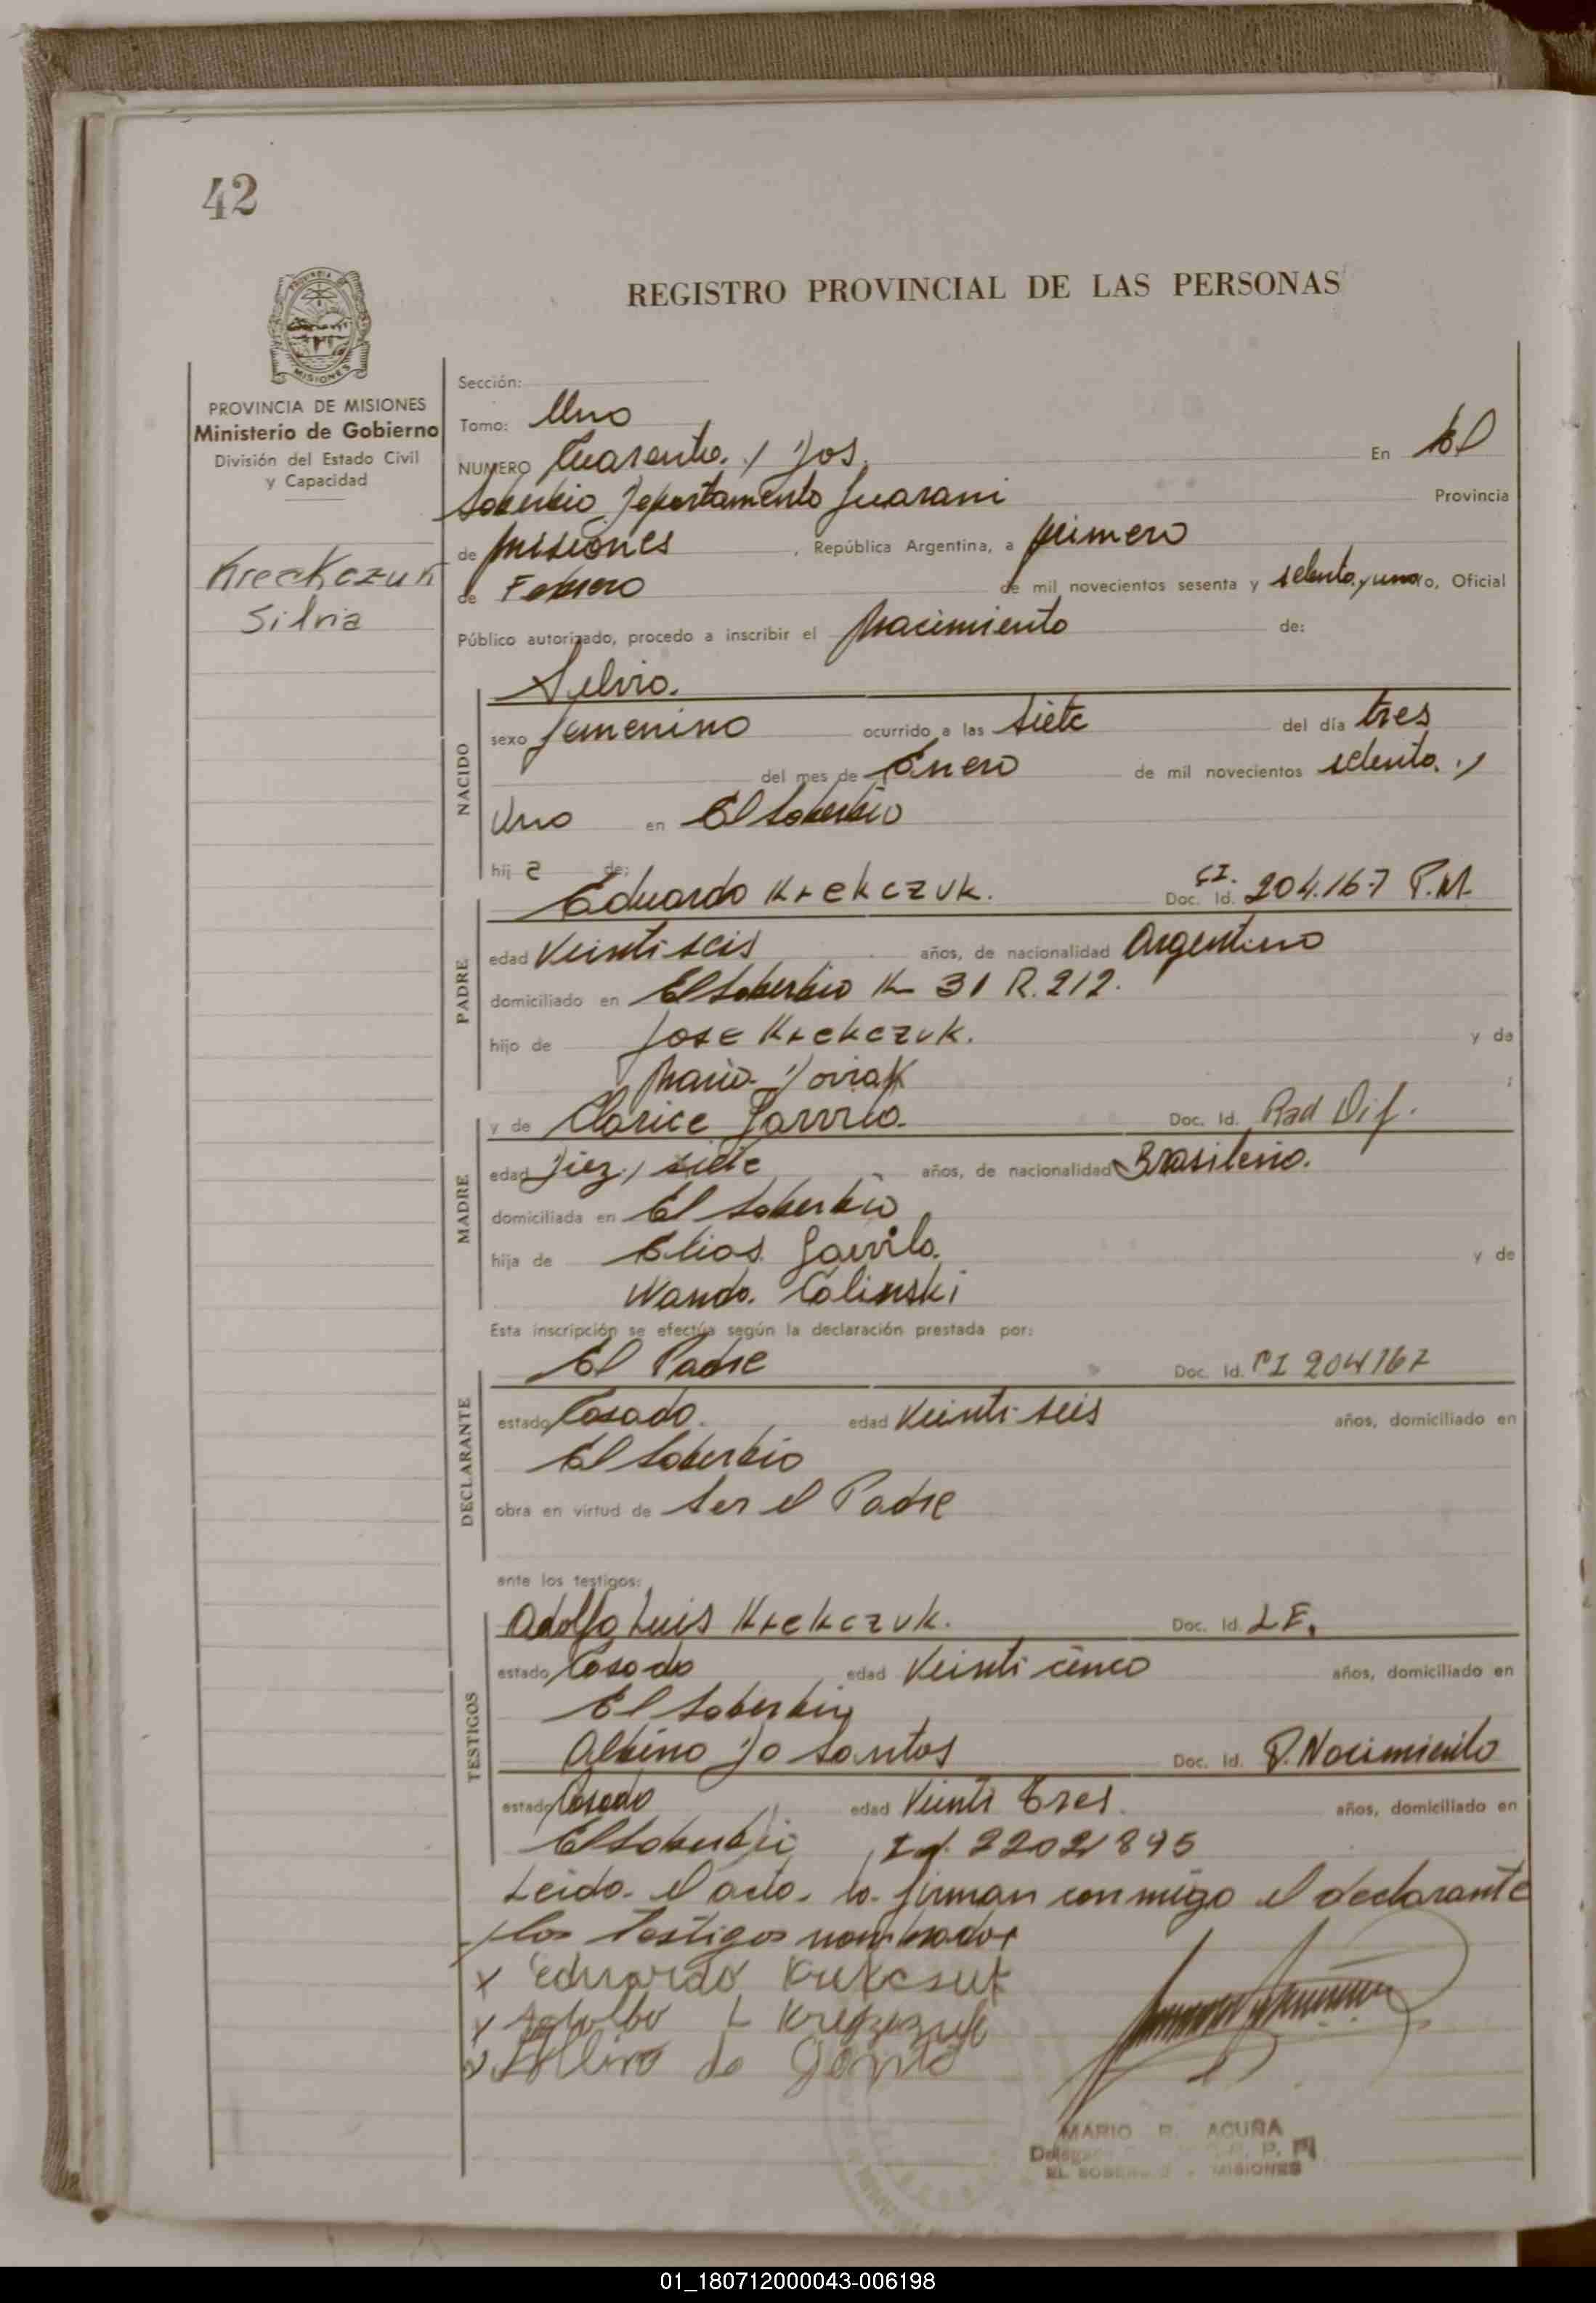 42
REGISTRO PROVINCIAL DE LAS PERSONAS
PROVINCIA DE MISIONES
Ministerio de Gobierno
División del Estado Civil
y Capacidad
Kreckczuk
Silvia
Sección:
Tomo: Uno
NUMERO Cuarenta y Dos En El
Soberbio Departamento Guarani Provincia
de Misiones, República Argentina, a primero
de Febrero de mil novecientos sesenta y setenta y uno, Oficial
Público autorizado, procedo a inscribir el Nacimiento de:
NACIDO
Silvia.
sexo femenino ocurrido a las siete del día tres
del mes de Enero de mil novecientos setenta y
Uno en El Soberbio
hij a de:
PADRE
Eduardo Krekczuk. Doc. Id. CI. 204.167 P.M.
edad Veinti seis años, de nacionalidad Argentino
domiciliado en El Soberbio Km 31 R. 212.
hijo de Jose Krekczuk. y de
Maria Doviak
MADRE
y de Clarice Doc. Id. Rad Dif.
edad Diez y siete años, de nacionalidad Brasileña.
domiciliada en El Soberbio
hija de Elias y de
Wanda Colinski
Esta inscripción se efectúa según la declaración prestada por:
DECLARANTE
El Padre Doc. Id. CI 204167
estado Casado. edad Veinti seis años, domiciliado en
El Soberbio
obra en virtud de Ser el Padre
ante los testigos:
TESTIGOS
Adolfo Luis Krekczuk. Doc. Id. L E.
estado Casado edad Veinti cinco años, domiciliado en
El Soberbio
Albino Do Santos Doc. Id. P. Nacimiento
estado Casado edad Veinti Tres. años, domiciliado en
El Soberbio
Leida el acta la firman con migo el declarante
y los testigos nombrados
x Eduardo
x L
de
MARIO R. ACUÑA
EL SOBERBIO MISIONES
01_180712000043-006198